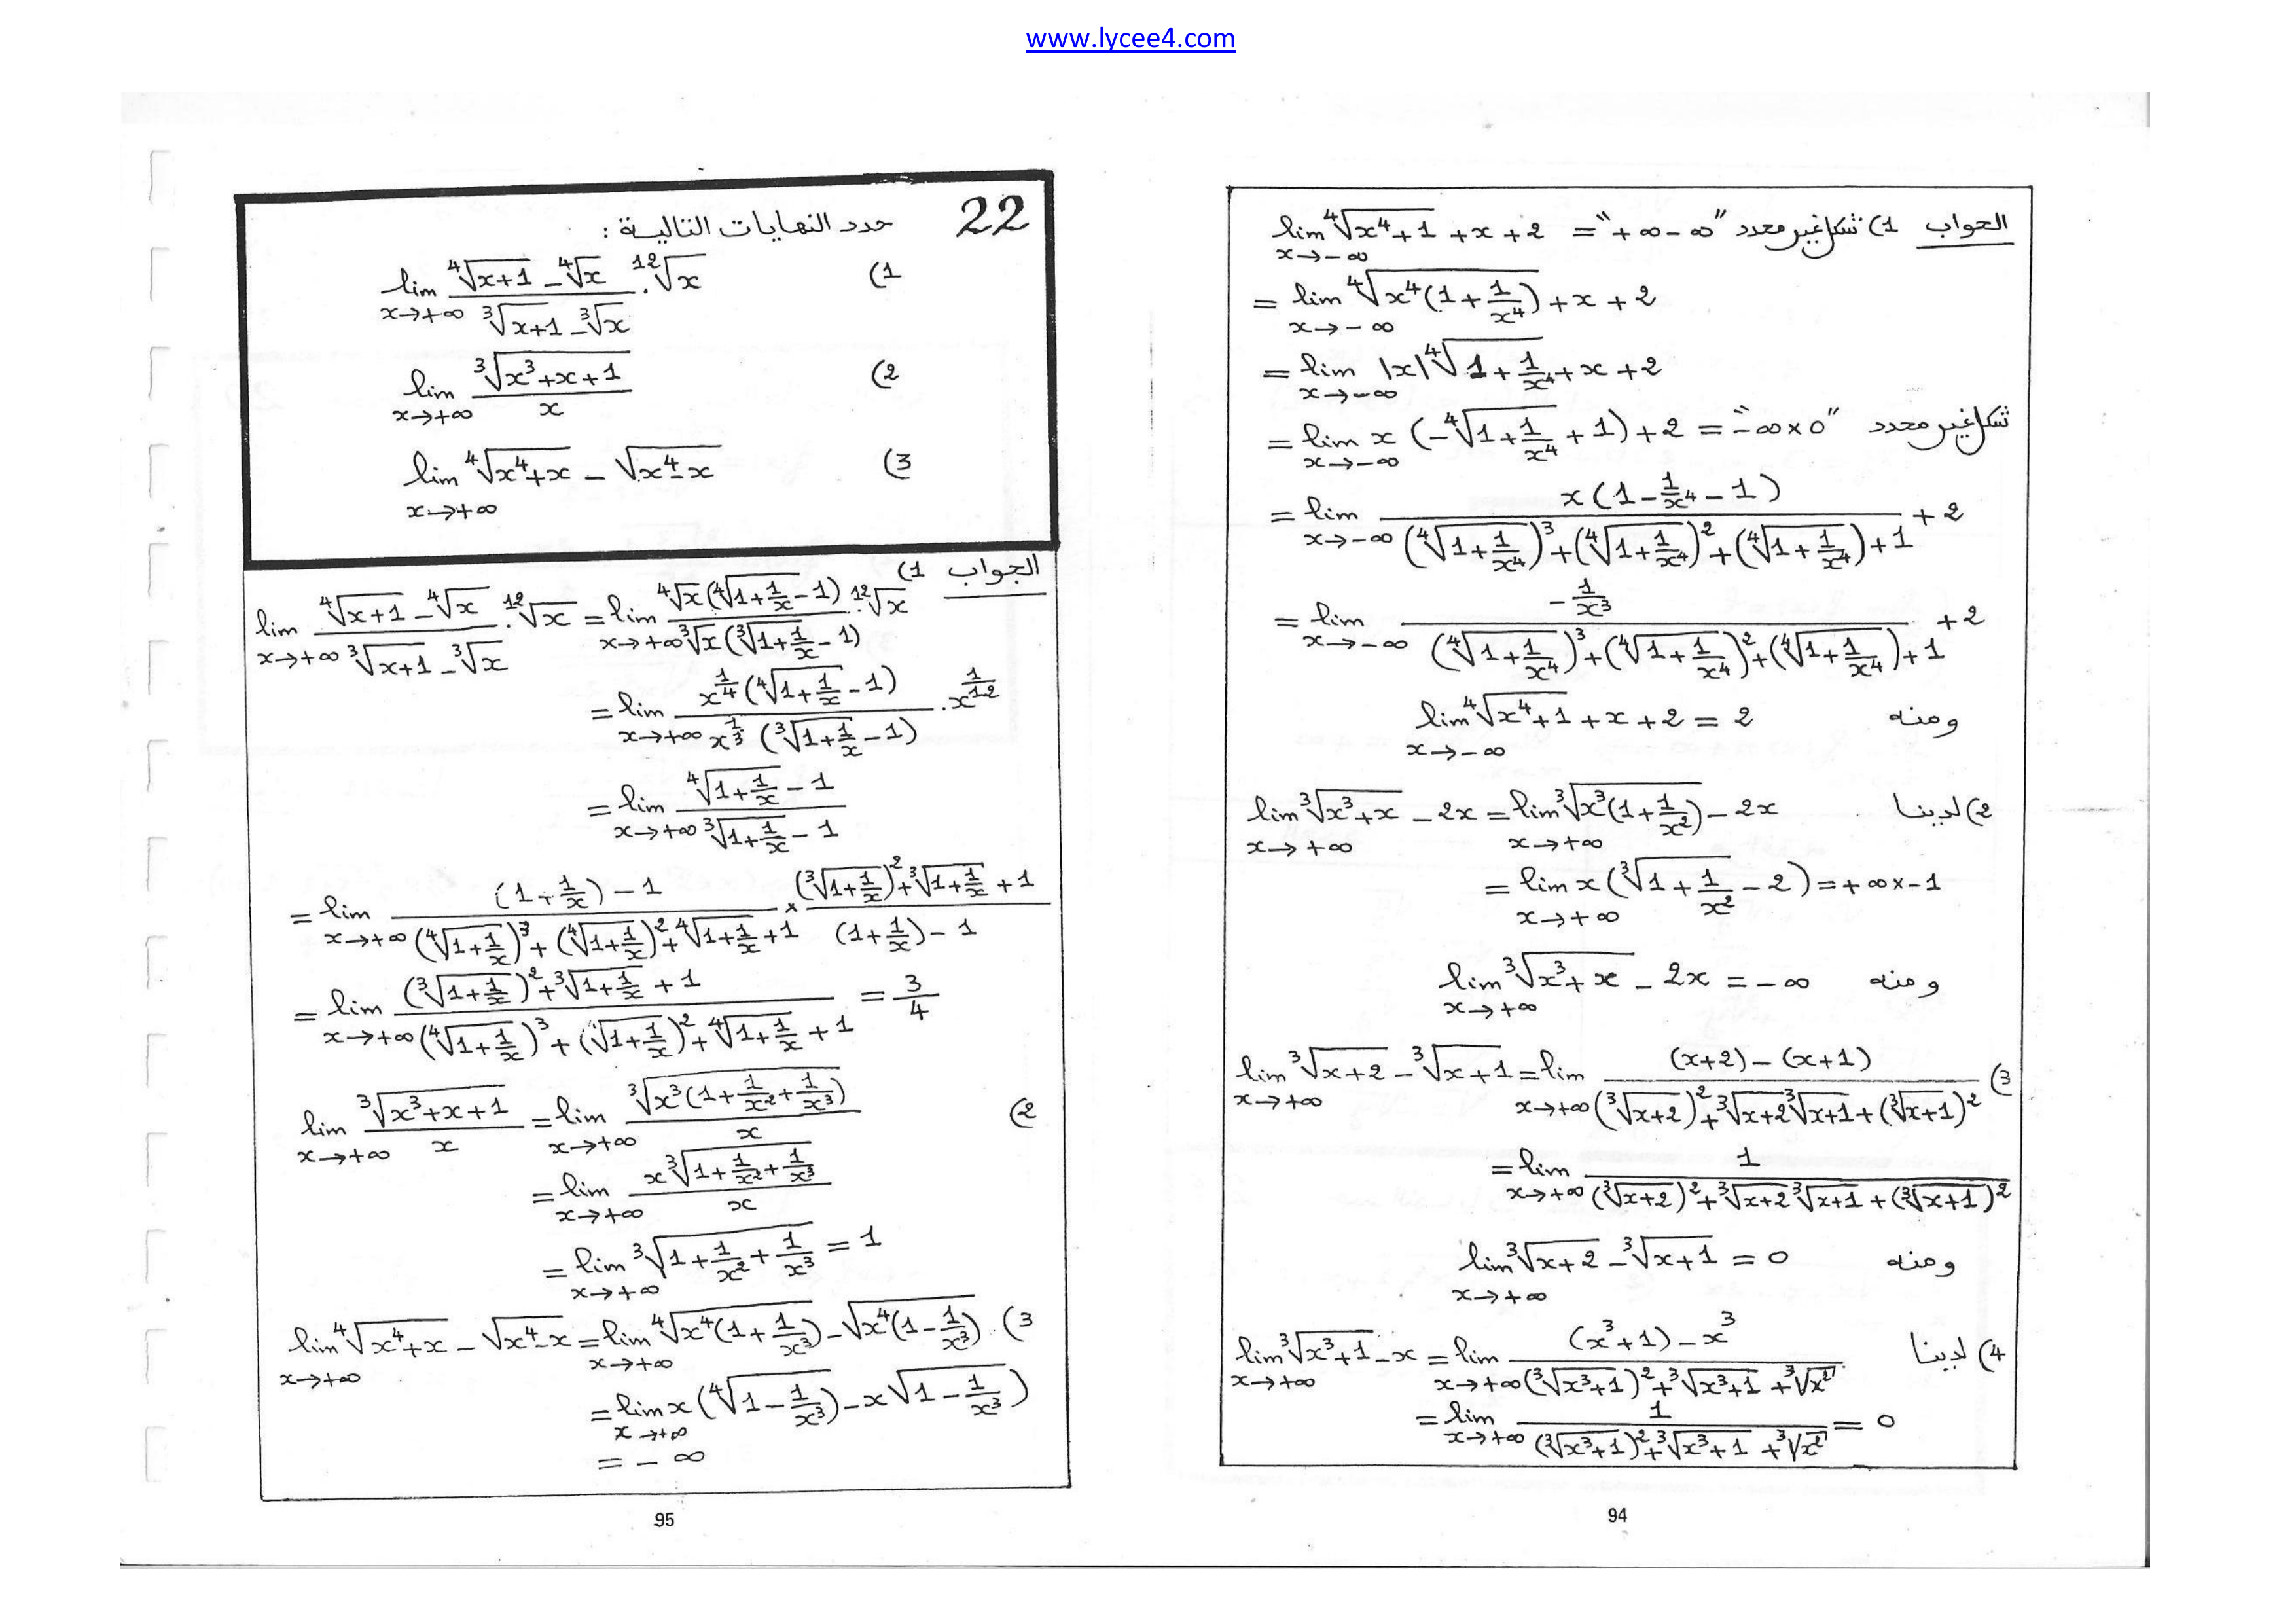 www.lycee4.com
الجواب 1) lim_{x→-∞} ⁴√(x⁴+1) + x + 2 = "+∞-∞" شكل غير محدد
= lim_{x→-∞} ⁴√(x⁴(1+1/x⁴)) + x + 2
= lim_{x→-∞} |x| ⁴√(1+1/x⁴) + x + 2
= lim_{x→-∞} x(-⁴√(1+1/x⁴) + 1) + 2 = "-∞×0" شكل غير محدد
= lim_{x→-∞} x(1-1/x⁴-1) / ((⁴√(1+1/x⁴))³+(⁴√(1+1/x⁴))²+(⁴√(1+1/x⁴))+1) + 2
= lim_{x→-∞} (-1/x³) / ((⁴√(1+1/x⁴))³+(⁴√(1+1/x⁴))²+(⁴√(1+1/x⁴))+1) + 2
ومنه lim_{x→-∞} ⁴√(x⁴+1) + x + 2 = 2
2) لدينا lim_{x→+∞} ³√(x³+x) - 2x = lim_{x→+∞} ³√(x³(1+1/x²)) - 2x
= lim_{x→+∞} x(³√(1+1/x²) - 2) = +∞×-1
ومنه lim_{x→+∞} ³√(x³+x) - 2x = -∞
3) lim_{x→+∞} ³√(x+2) - ³√(x+1) = lim_{x→+∞} ((x+2)-(x+1)) / ((³√(x+2))²+³√(x+2) ³√(x+1)+(³√(x+1))²)
= lim_{x→+∞} 1 / ((³√(x+2))²+³√(x+2) ³√(x+1)+(³√(x+1))²)
ومنه lim_{x→+∞} ³√(x+2) - ³√(x+1) = 0
4) لدينا lim_{x→+∞} ³√(x³+1) - x = lim_{x→+∞} ((x³+1)-x³) / ((³√(x³+1))²+³√(x³+1)+³√(x²))
= lim_{x→+∞} 1 / ((³√(x³+1))²+³√(x³+1)+³√(x²)) = 0
94
22 حدد النهايات التالية :
1) lim_{x→+∞} (⁴√(x+1) - ⁴√x) / (³√(x+1) - ³√x) . ¹²√x
2) lim_{x→+∞} ³√(x³+x+1) / x
3) lim_{x→+∞} ⁴√(x⁴+x) - √(x⁴-x)
الجواب 1)
lim_{x→+∞} (⁴√(x+1) - ⁴√x) / (³√(x+1) - ³√x) . ¹²√x = lim_{x→+∞} ⁴√x(⁴√(1+1/x) - 1) / (³√x(³√(1+1/x) - 1)) . ¹²√x
= lim_{x→+∞} x^{1/4}(⁴√(1+1/x) - 1) / (x^{1/3}(³√(1+1/x) - 1)) . x^{1/12}
= lim_{x→+∞} (⁴√(1+1/x) - 1) / (³√(1+1/x) - 1)
= lim_{x→+∞} ((1+1/x)-1) / ((⁴√(1+1/x))³+(⁴√(1+1/x))²+⁴√(1+1/x)+1) × ((³√(1+1/x))²+³√(1+1/x)+1) / ((1+1/x)-1)
= lim_{x→+∞} ((³√(1+1/x))²+³√(1+1/x)+1) / ((⁴√(1+1/x))³+(√(1+1/x))²+⁴√(1+1/x)+1) = 3/4
2) lim_{x→+∞} ³√(x³+x+1) / x = lim_{x→+∞} ³√(x³(1+1/x²+1/x³)) / x
= lim_{x→+∞} x ³√(1+1/x²+1/x³) / x
= lim_{x→+∞} ³√(1+1/x²+1/x³) = 1
3) lim_{x→+∞} ⁴√(x⁴+x) - √(x⁴-x) = lim_{x→+∞} ⁴√(x⁴(1+1/x³)) - √(x⁴(1-1/x³))
= lim_{x→+∞} x(⁴√(1-1/x³)) - x√(1-1/x³))
= -∞
95